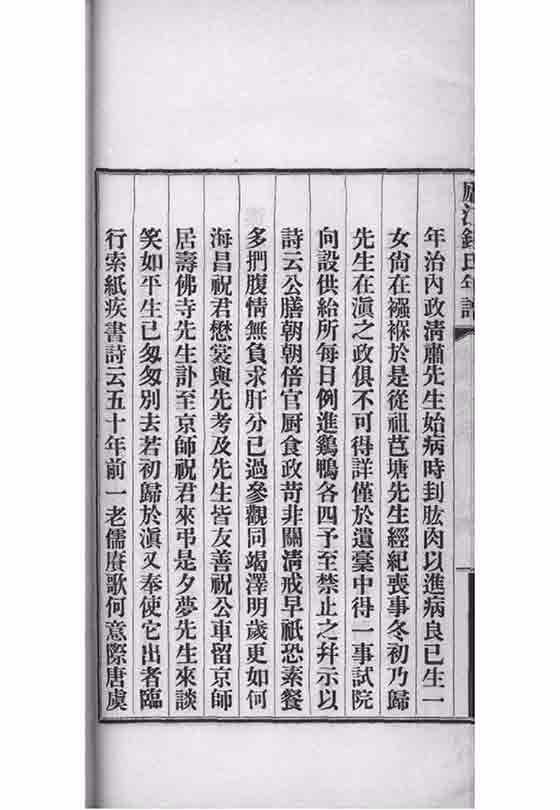 廬江錢氏年譜
年治內政淸肅先生始病時刲肱肉以進病良已生一
女尙在襁褓於是從祖芑塘先生經紀喪事冬初乃歸
先生在滇之政俱不可得詳僅於遺稾中得一事試院
向設供給所每日例進鷄鴨各四予至禁止之幷示以
詩云公膳朝朝倍官厨食政苛非關淸戒早祇恐素餐
多捫腹情無負求肝分已過參觀同竭澤明歲更如何
海昌祝君懋裳與先考及先生皆友善祝公車留京師
居壽佛寺先生訃至京師祝君來弔是夕夢先生來談
笑如平生已匆匆別去若初歸於滇又奉使它出者臨
行索紙疾書詩云五十年前一老儒賡歌何意際唐虞